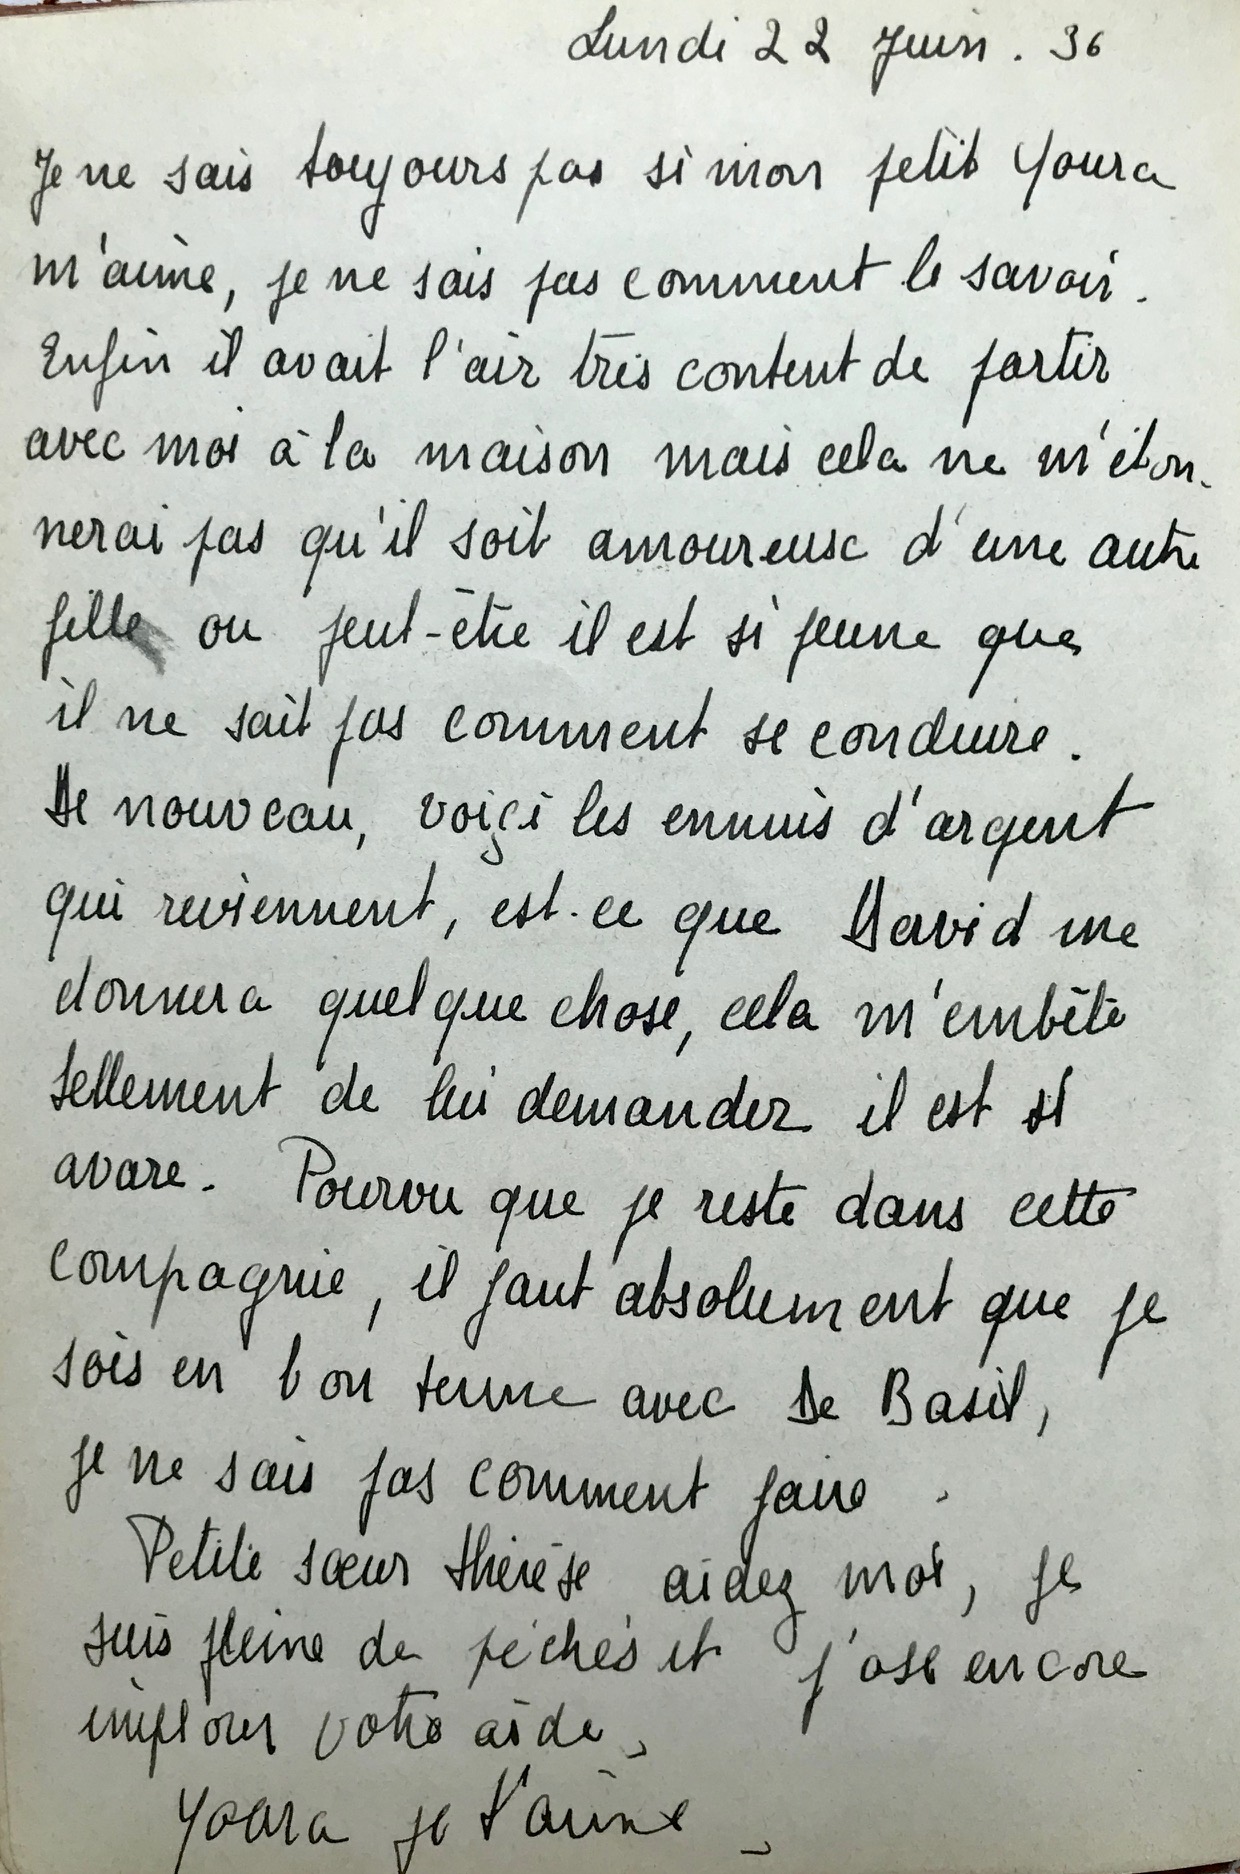 Lundi 22 Juin. 36
Je ne sais toujours pas si mon petit Youra
m'aime, je ne sais pas comment le savoir.
Enfin il avait l'air très content de partir
avec moi à la maison mais cela ne m'éton-
nerai pas qu'il soit amoureuse d'une autre
fille ou peut-être il est si jeune que
il ne sait pas comment se conduire.
De nouveau, voiçi les ennuis d'argent
qui reviennent, est-ce que David me
donnera quelque chose, cela m'embête
tellement de lui demander il est si
avare. Pourvu que je reste dans cette
compagnie, il faut absolument que je
sois en bon terme avec De Basil,
je ne sais pas comment faire.
Petite sœur thérèse aidez moi, je
suis pleine de péchés et j'ose encore
implorer votre aide,
Youra je t'aime